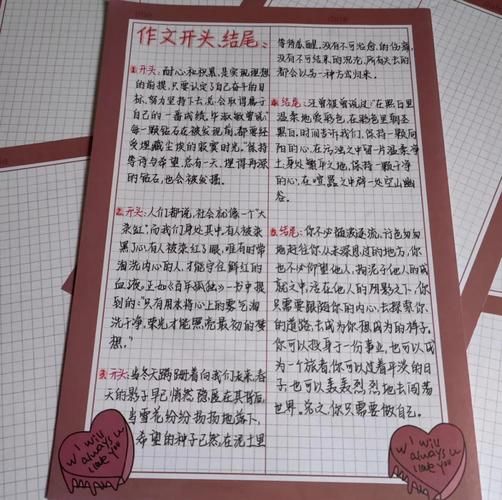 作文开头、结尾:
①开头:耐心和积累,是实现理想
的前提,只要认定了自己奋斗的目
标,努力坚持下去,总会取得属于
自己的一番成绩。毕淑敏曾说:"
每一颗钻石在被发现前,都要经
受埋藏尘埃的寂寞时光。"保持
等待与希望,总有一天,埋得再深
的钻石,也会被发掘。
②开头:人们都说,社会就像一个"大
染缸"而我们身处其中,有人被染
黑了心,有人被染红了眼,唯有时常
淘洗内心的人,才能守住鲜红的
血液。正如《百年孤独》一书中提
到的:"只有用水将心上的雾气淘
洗干净,荣光才能照亮最初的梦
想。"
③开头:当冬天蹒跚着向我们走来,春
天的影子早已悄然隐匿在其背后,
当雪花纷纷扬扬地落下,
希望的种子已然,在泥土里
等待苏醒,没有不可治愈的伤痛,
没有不可结束的沉沦,所有失去的
都会以另一种方式归来。
结尾:汪曾祺曾说过:"在黑白里
温柔地爱彩色,在彩色里朝圣
黑白。"时间告诉我们,保持一颗向
阳的心,在污浊之中留一片温柔净
土,身处繁华之地,保持一颗干净
的心,在喧嚣之中辟一处空山幽
谷。
结尾:你不必随波逐流,行色匆匆
地赶往你从未深思过的地方,你
也不必仰望他人,拘泥于他人的成
就之中,活在他人的阴影之下,你
只需要跟随你的内心,去探索你
的道路,去成为你想成为的样子,
你可以投身于一份事业,也可以成
为一个旅者,你可以过着平淡的日
子,也可以轰轰烈烈地去闯荡
世界。总之,你只需要做自己。
I will
always
love you
I will
always
love you